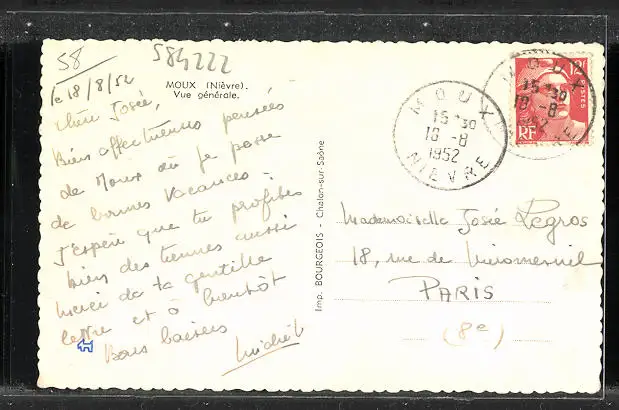 58
584222
le 18/8/52
MOUX (Nièvre).
Vue générale.
Chère Josée,
Bien affectueuses pensées
de Moux où je passe
de bonnes vacances.
J'espère que tu profites
bien des tiennes aussi
Merci de ta gentille
lettre et à bientôt
Bons baisers
Imp. BOURGEOIS - Chalon-sur-Saône
MOUX
15 30
18-8
1952
NIÈVRE
MOUX
15 30
18-8
1952
12F
POSTES
RF
Mademoiselle Josée Legros
18, rue de Miromesnil
PARIS
(8e)